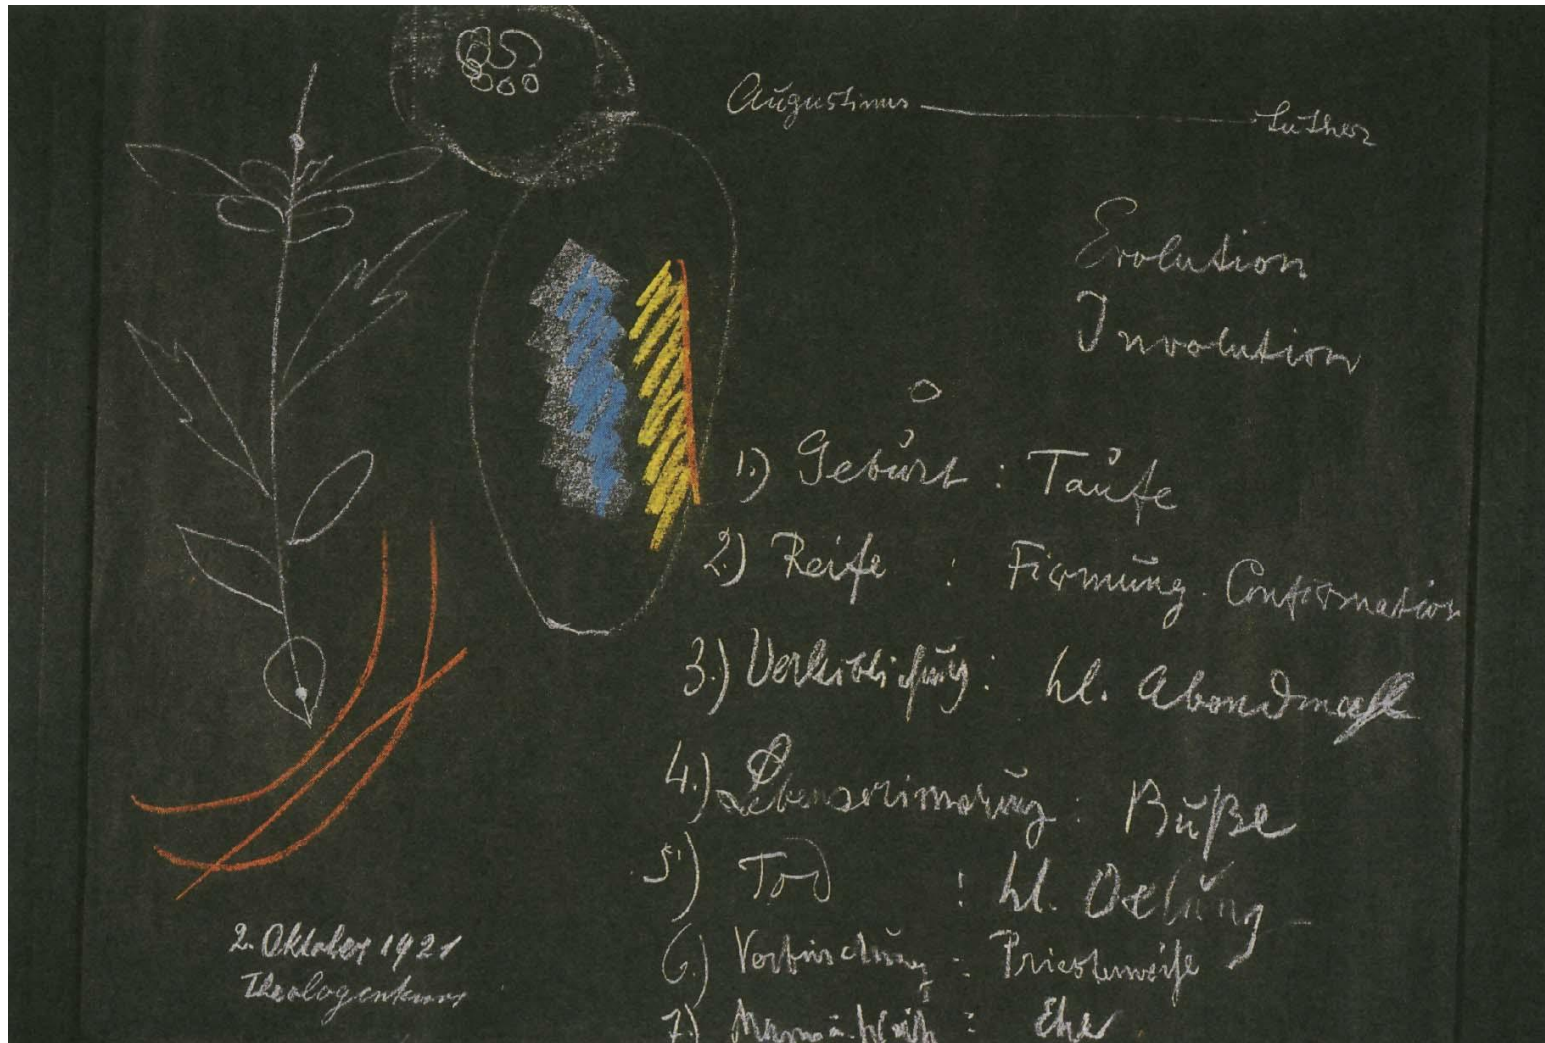 Augustinus — Luther
Evolution
Involution
1.) Gebŭrt : Taŭfe
2.) Reife : Firmŭng. Confirmation
3.) Verleiblichŭng : hl. Abendmahl
4.) Lebenserinnerŭng : Bŭße
5.) Tod : hl. Oelŭng
6.) Verbindŭng : Priesterweihe
7.) : Ehe
2. Oktober 1921
Theologenkurs